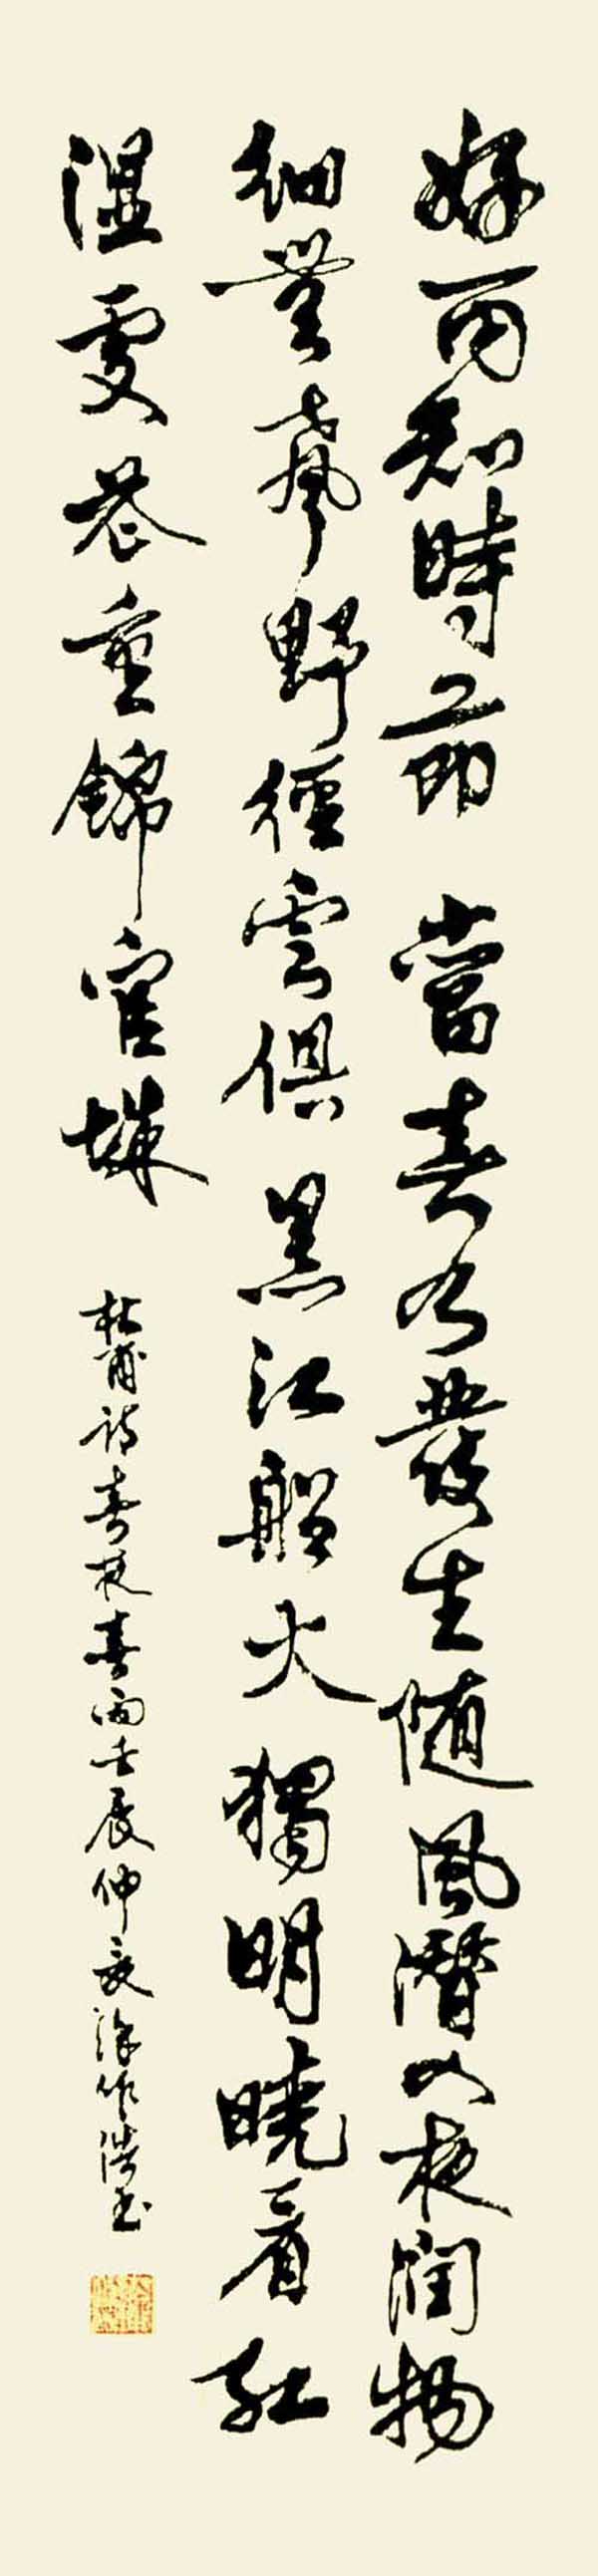 好雨知時節當春乃發生随風潛入夜潤物
細無聲野徑雲俱黑江船火獨明曉看紅
湿處花重錦官城
杜甫詩春夜喜雨壬辰仲夏作浩书